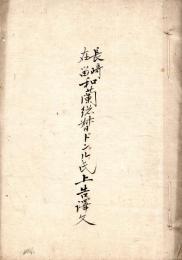 長崎
在留和蘭総督ドンクル氏上告譯文